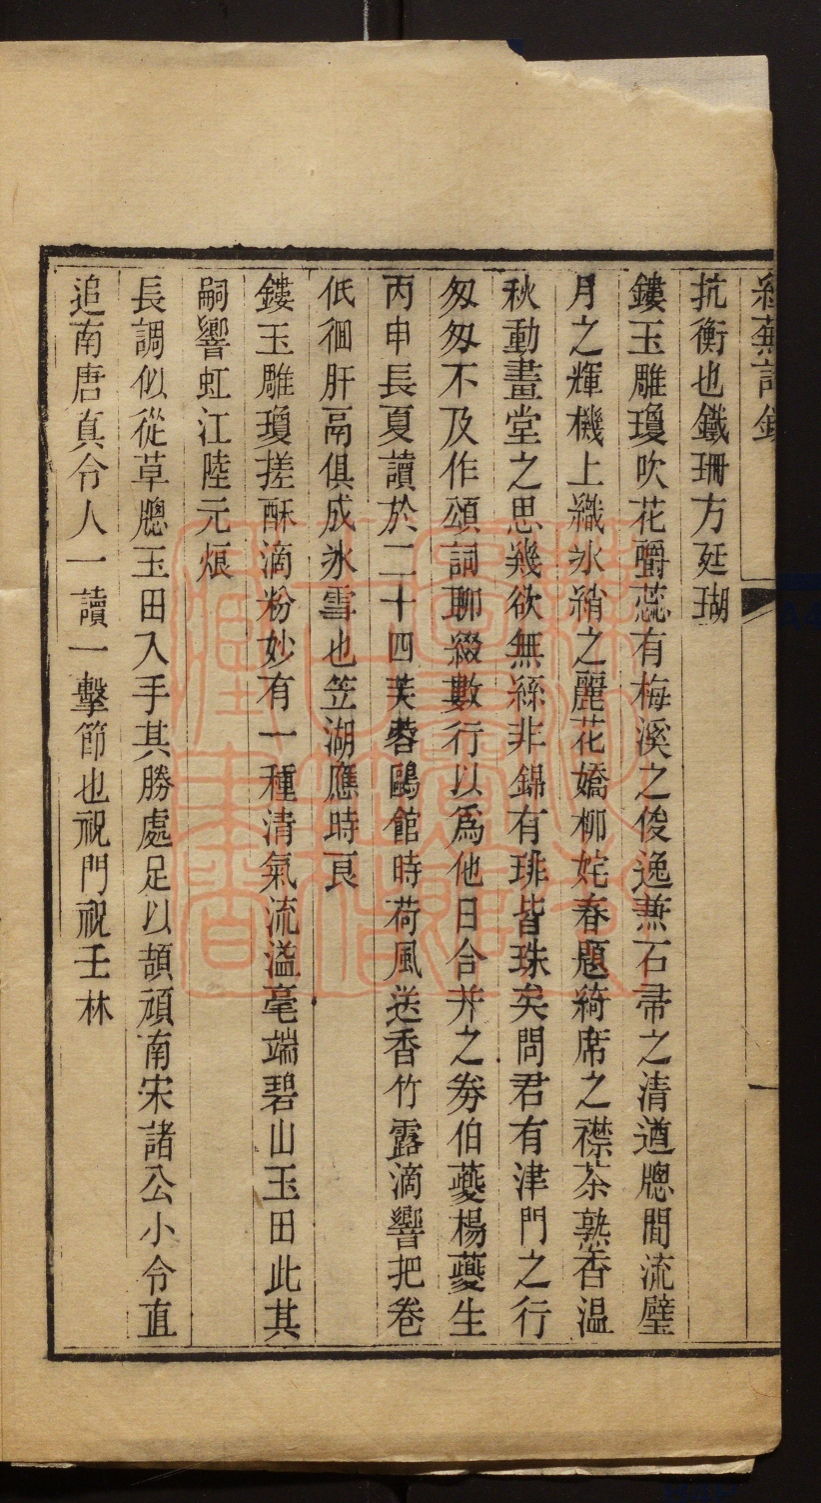 蕪詞鈔
抗衡也鐵珊方廷瑚
鏤玉雕瓊吹花嚼蕊有梅溪之俊逸兼石帚之清遒牕間流璧
月之輝機上織氷綃之麗花嬌柳姹春題綺席之襟茶熟香溫
秋動畫堂之思幾欲無絲非錦有琲皆珠矣問君有津門之行
匆匆不及作頌詞聊綴數行以爲他日合并之劵伯夔楊夔生
丙申長夏讀於二十四芙蓉鷗館時荷風送香竹露滴響把卷
低徊肝鬲俱成氷雪也笠湖應時良
鏤玉雕瓊搓酥滴粉妙有一種清氣流溢毫端碧山玉田此其
嗣響虹江陸元烺
長調似從草牕玉田入手其勝處足以頡頏南宋諸公小令直
追南唐真令人一讀一擊節也祝門祝壬林
一